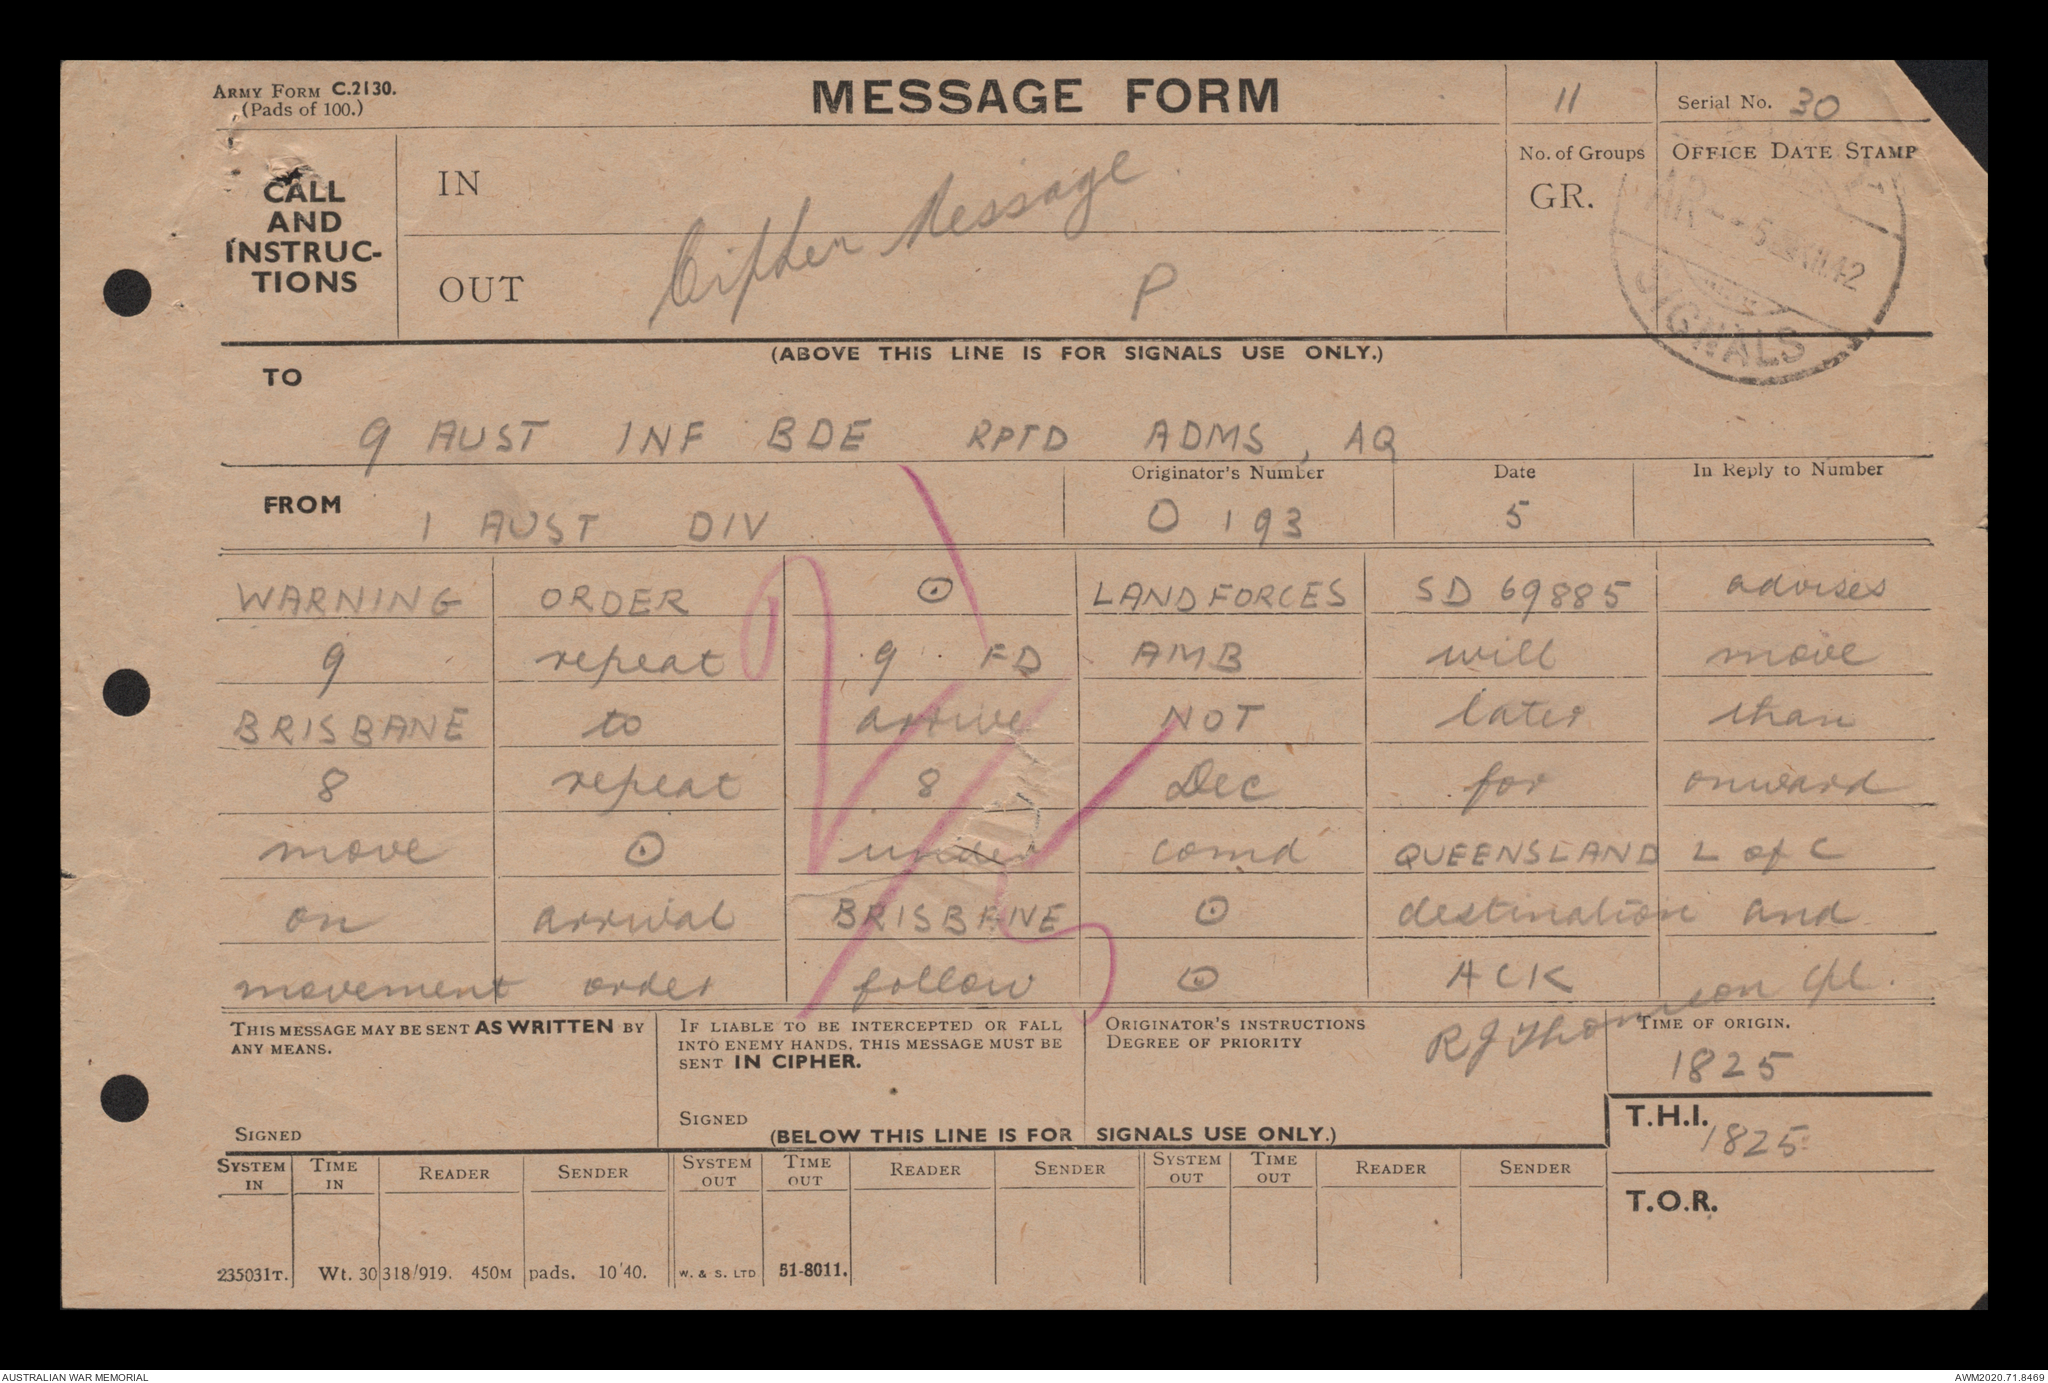 ARMY FORM C.2130.
(Pads of 100.)
MESSAGE FORM
11
Serial No. 30
CALL
AND
INSTRUC-
TIONS
IN
OUT
Cipher Message.
P
No. of Groups
GR.
OFFICE DATE STAMP
5 XII 42
SIGNALS
(ABOVE THIS LINE IS FOR SIGNALS USE ONLY.)
TO
9 AUST INF BDE RPTD ADMS, AQ
FROM
1 AUST DIV
Originator's Number
O 193
Date
5
In Reply to Number
WARNING ORDER ⊙ LANDFORCES SD 69885 advises
9 repeat 9 FD AMB will move
BRISBANE to arrive NOT later than
8 repeat 8 Dec for onward
move ⊙ under comd QUEENSLAND L of C
on arrival BRISBANE ⊙ destination and
movement order follow ⊙ ACK
THIS MESSAGE MAY BE SENT AS WRITTEN BY
ANY MEANS.
SIGNED
IF LIABLE TO BE INTERCEPTED OR FALL
INTO ENEMY HANDS, THIS MESSAGE MUST BE
SENT IN CIPHER.
SIGNED
ORIGINATOR'S INSTRUCTIONS
DEGREE OF PRIORITY
RJ Thomson Cpl.
TIME OF ORIGIN.
1825
T.H.I.
1825
T.O.R.
(BELOW THIS LINE IS FOR SIGNALS USE ONLY.)
SYSTEM IN
TIME IN
READER
SENDER
SYSTEM OUT
TIME OUT
READER
SENDER
SYSTEM OUT
TIME OUT
READER
SENDER
235031T. Wt. 30318/919. 450M pads. 10'40. W. & S. LTD 51-8011.
AUSTRALIAN WAR MEMORIAL
AWM2020.71.8469